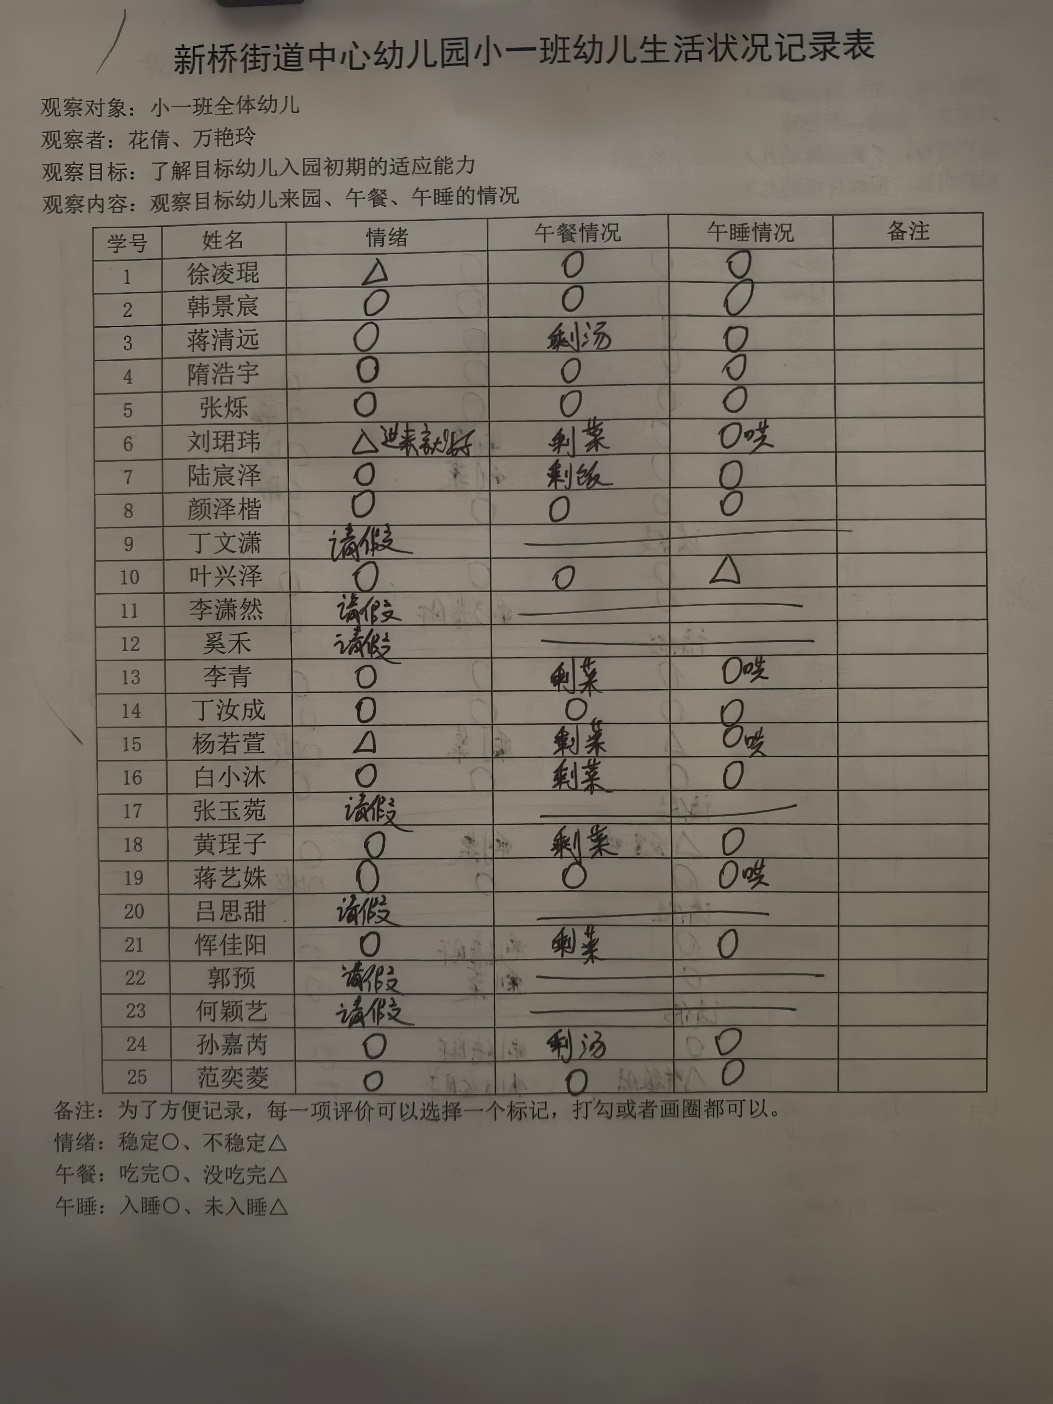 新桥街道中心幼儿园小一班幼儿生活状况记录表
观察对象：小一班全体幼儿
观察者：花倩、万艳玲
观察目标：了解目标幼儿入园初期的适应能力
观察内容：观察目标幼儿来园、午餐、午睡的情况
学号 姓名 情绪 午餐情况 午睡情况 备注
1 徐凌琨 △ ○ ○
2 韩景宸 ○ ○ ○
3 蒋清远 ○ 剩汤 ○
4 隋浩宇 ○ ○ ○
5 张烁 ○ ○ ○
6 刘珺玮 △进来就好 剩菜 ○哄
7 陆宸泽 ○ 剩饭 ○
8 颜泽楷 ○ ○ ○
9 丁文潇 请假
10 叶兴泽 ○ ○ △
11 李潇然 请假
12 奚禾 请假
13 李青 ○ 剩菜 ○哄
14 丁汝成 ○ ○ ○
15 杨若萱 △ 剩菜 ○哄
16 白小沐 ○ 剩菜 ○
17 张玉菀 请假
18 黄珵子 ○ 剩菜 ○
19 蒋艺姝 ○ ○ ○哄
20 吕思甜 请假
21 恽佳阳 ○ 剩菜 ○
22 郭预 请假
23 何颖艺 请假
24 孙嘉芮 ○ 剩汤 ○
25 范奕菱 ○ ○ ○
备注：为了方便记录，每一项评价可以选择一个标记，打勾或者画圈都可以。
情绪：稳定○、不稳定△
午餐：吃完○、没吃完△
午睡：入睡○、未入睡△